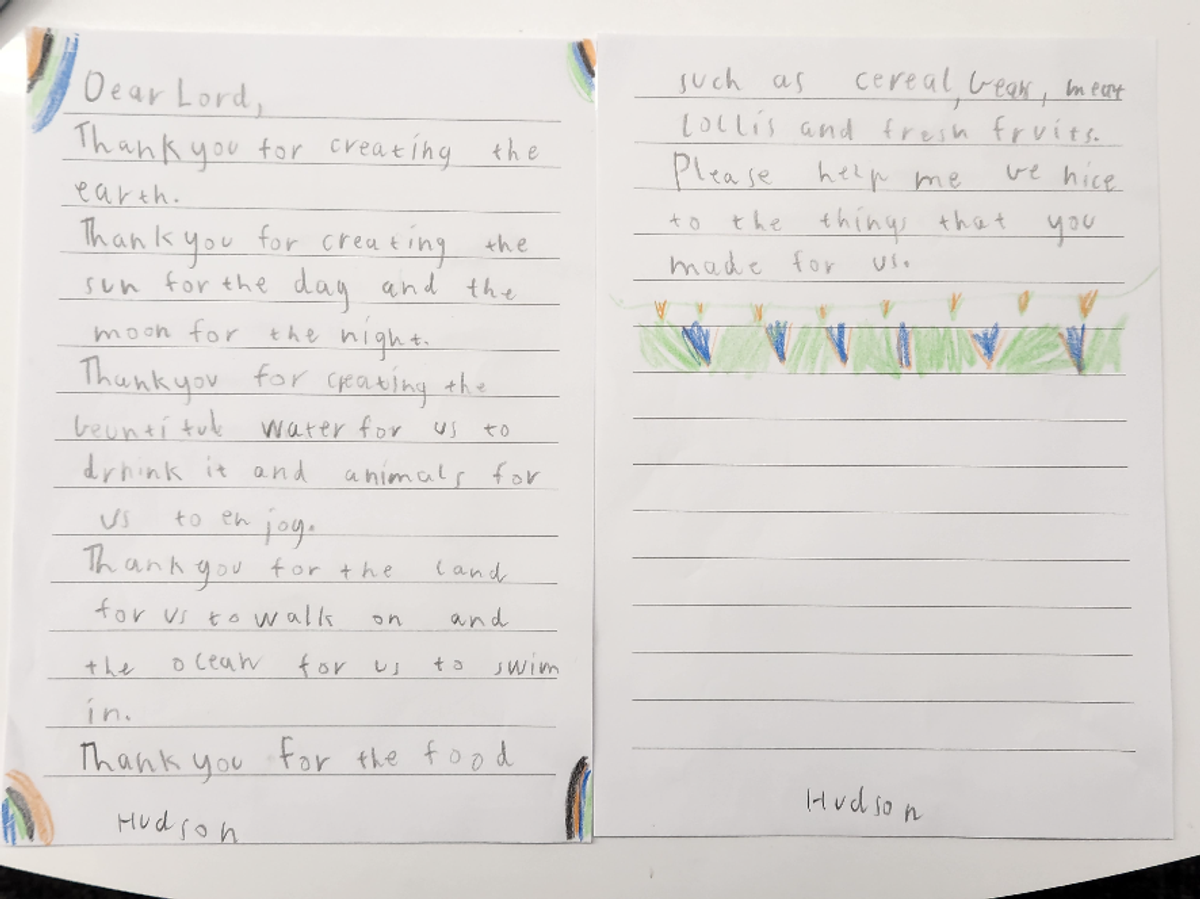 Dear Lord,
Thank you for creating the
earth.
Thank you for creating the
sun for the day and the
moon for the night.
Thank you for creating the
water for us to
drhink it and animals for
us to enjoy.
Thank you for the land
for us to walk on and
the ocean for us to swim
in.
Thank you for the food
Hudson
such as cereal, , meat
Lollis and fresh fruits.
Please help me be nice
to the things that you
made for us.
Hudson